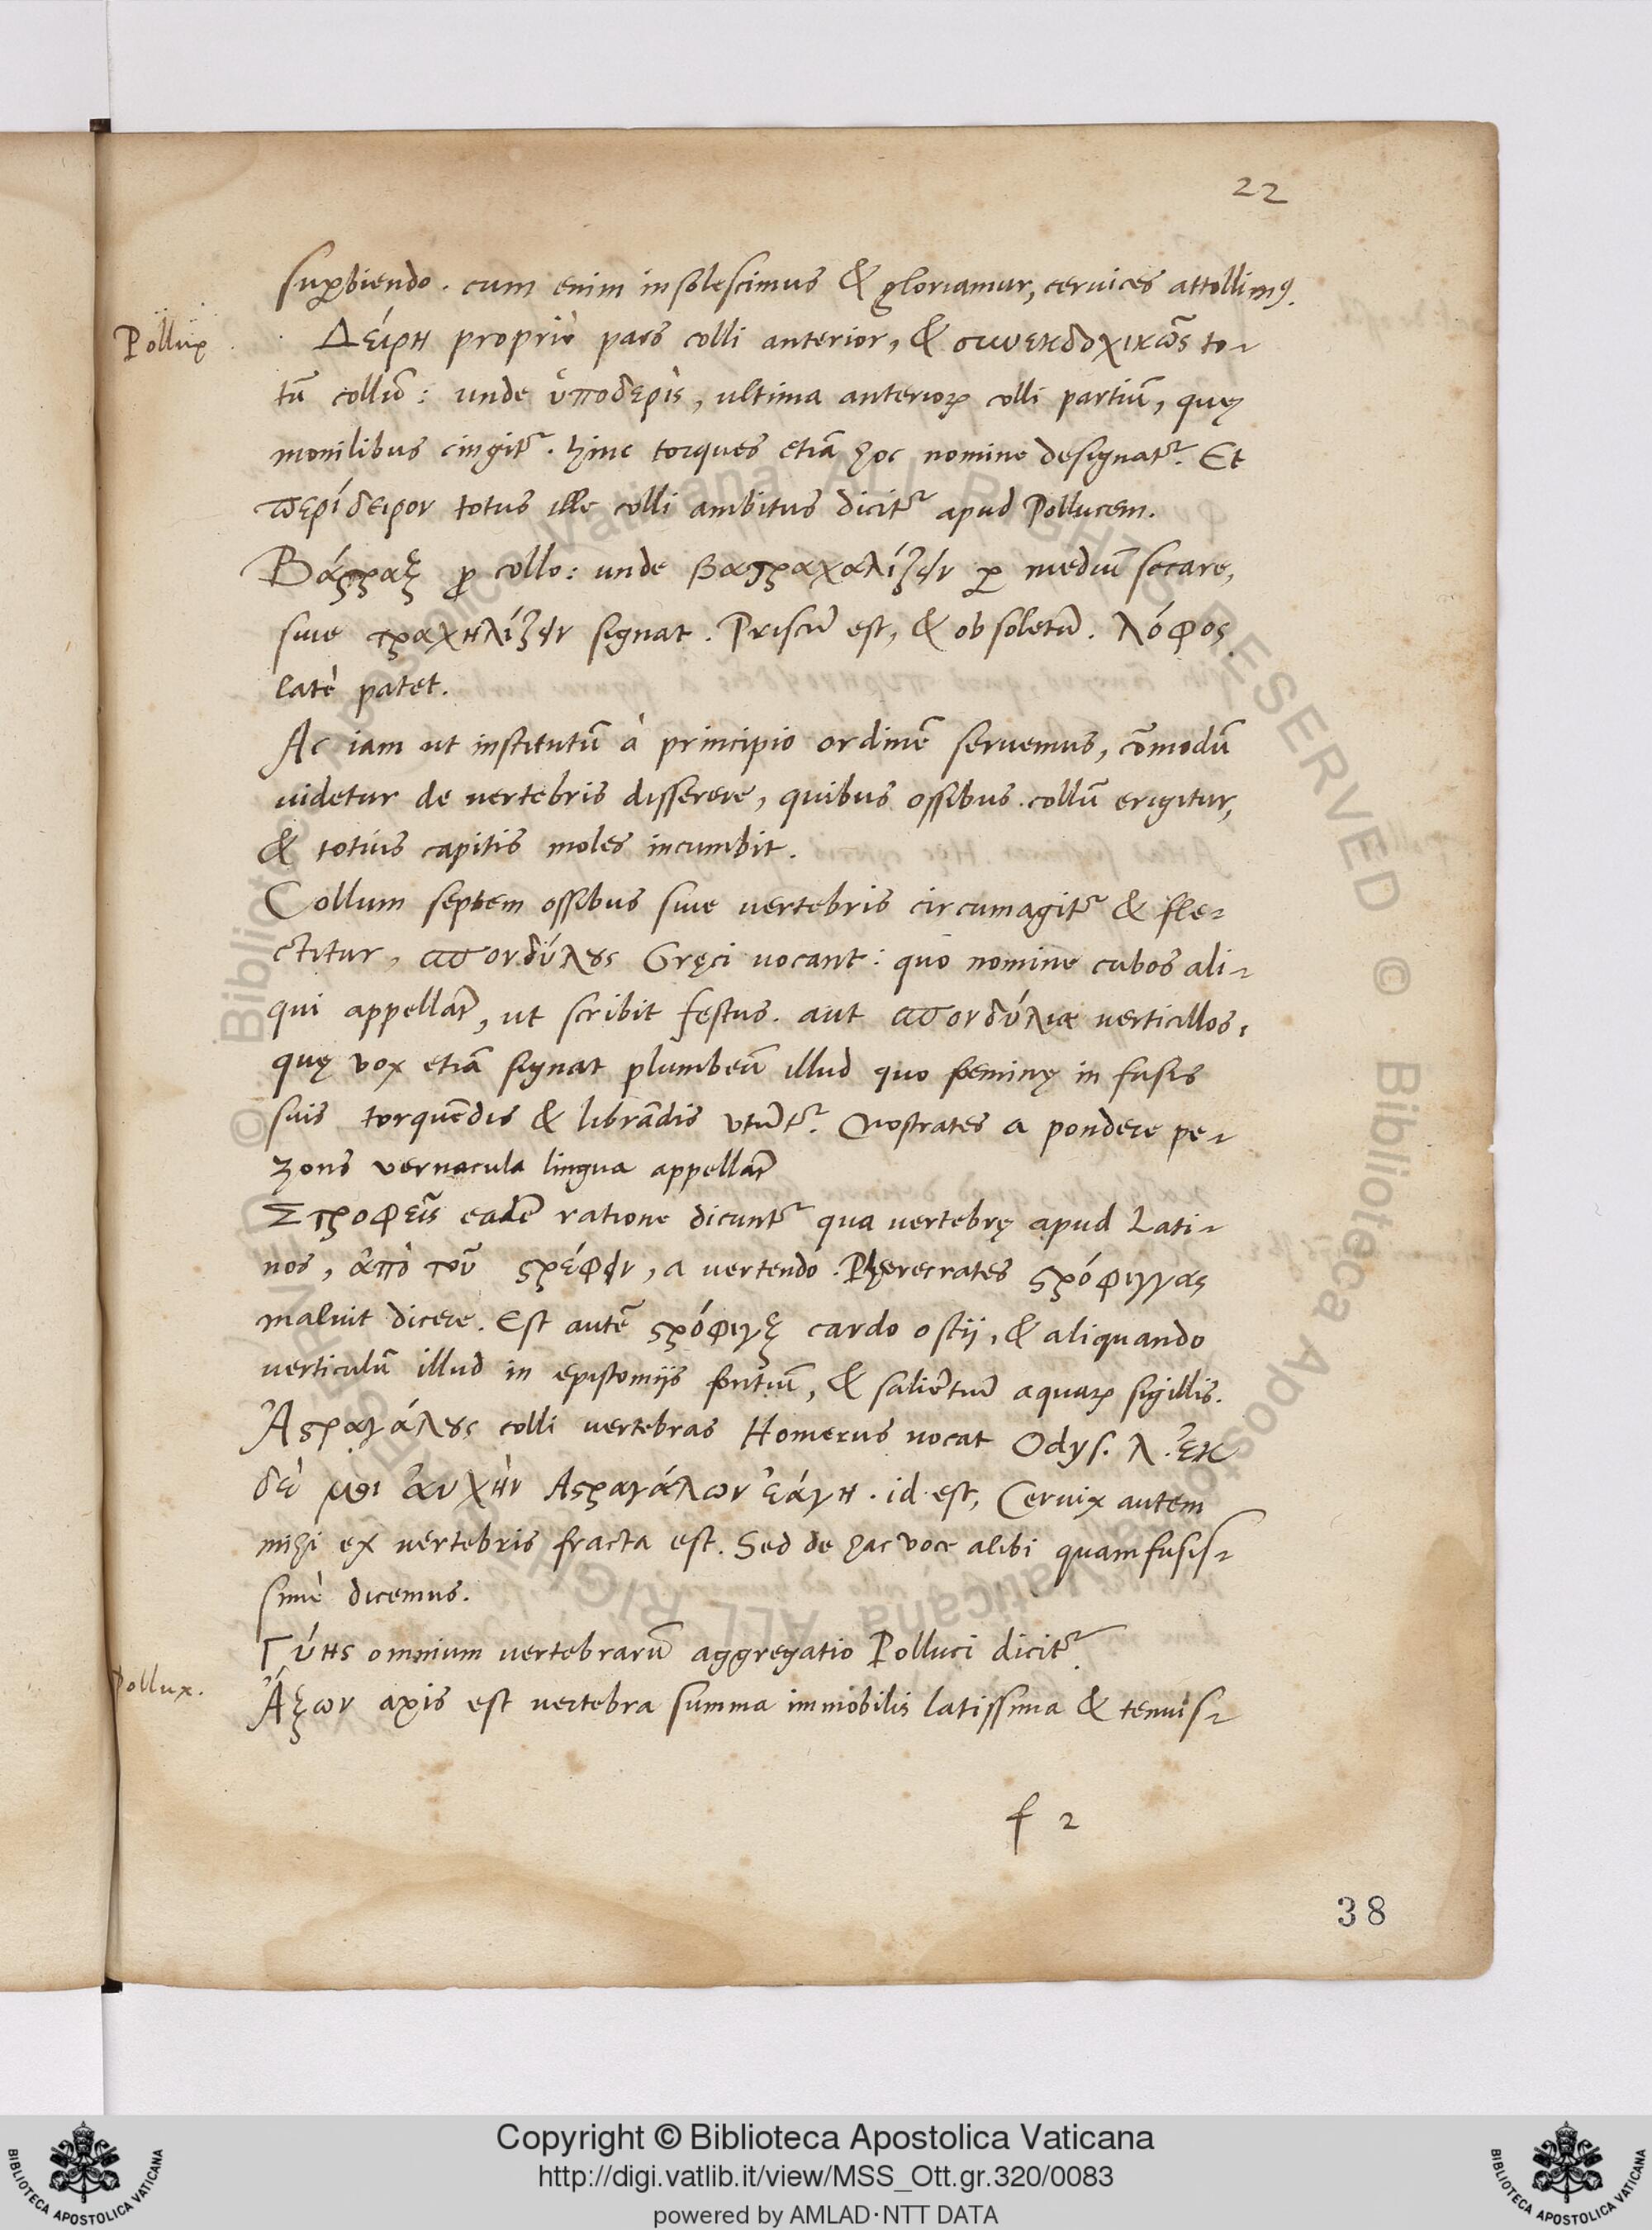 22
suꝑbiendo. cum enim insolescimus & gloriamur, cervices attollimꝰ.
Pollux
Δείρη propriè pars colli anterior, & συνεκδοχικῶς to-
tũ collũ: unde ὑποδερὶς, ultima anterioꝝ colli partiũ, quę
monilibus cingitr̃. hinc torques etiã hoc nomine designatr̃. Et
περίδειρον totus ille colli ambitus dicitr̃ apud Pollucem.
Βάτραξ ꝓ collo: unde βατραχαλίζειν ꝑ mediũ secare,
sive τραχηλίζειν signat. Priscũ est, & obsoletũ. λόφος
latè patet.
Ac iam ut institutũ à principio ordinẽ servemus, cõmodũ
videtur de vertebris disserere, quibus ossibus collũ erigitur,
& totius capitis moles incumbit.
Collum septem ossibus sive vertebris circumagitr̃ & fle-
ctitur, σπονδύλους Gręci vocant: quo nomine cubos ali-
qui appellãt, ut scribit festus. aut σπονδύλια verticillos,
quę vox etiã signat plumbeũ illud quo feminę in fusis
suis torquẽdis & librãdis utũtr̃. Nostrates a pondere pe-
zons vernacula lingua appellãt
Στροφεῖς eadẽ ratione dicuntr̃ qua vertebrę apud Lati-
nos, ἀπὸ τοῦ στρέφειν, a vertendo. Pherecrates στρόφιγγας
maluit dicere. Est autẽ στρόφιγξ cardo ostii, & aliquando
verticulũ illud in epistomiis fõtiũ, & saliẽtiũ aquaꝝ sigillis.
Ἀστραγάλους colli vertebras Homerus vocat Odys. λ. ἐκ
δέ μοι ἀυχὴν Αστραγάλων ἐάγη. id est, Cervix autem
mihi ex vertebris fracta est. Sed de hac voce alibi quamfusis-
simè dicemus.
Γύης omnium vertebrarũ aggregatio Polluci dicitr̃
Pollux.
Ἄξων axis est vertebra summa immobilis latissima & tenuis-
f 2
38
Copyright © Biblioteca Apostolica Vaticana
http://digi.vatlib.it/view/MSS_Ott.gr.320/0083
powered by AMLAD·NTT DATA